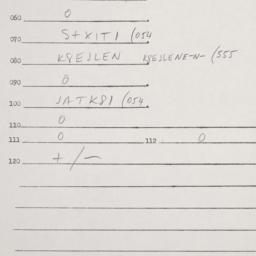 060 0
070 S+XITI (054
080 K8EJLEN K8EJLENE-N- (555
090 0
100 JATK8I (054
110 0
111 0 112 0
120 +/-